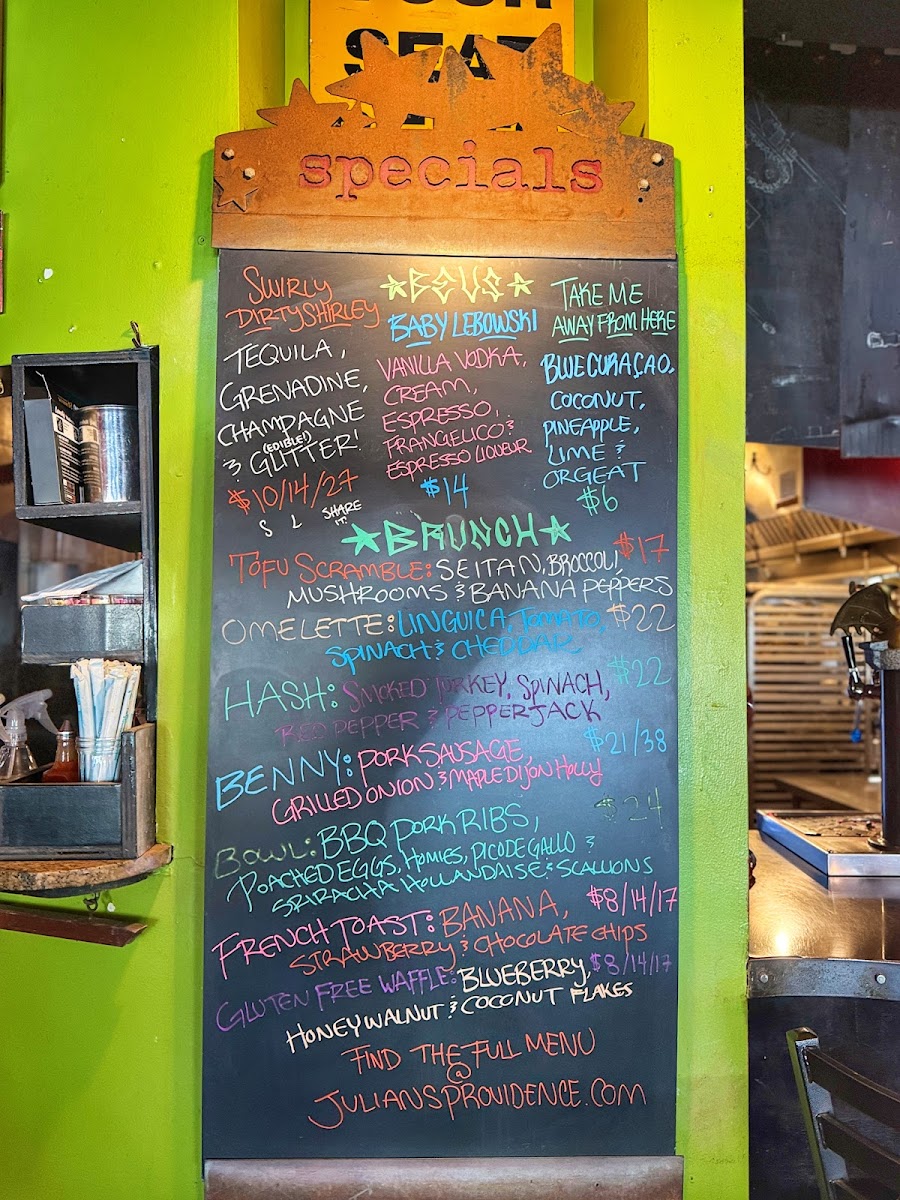 SEAT
specials
SWIRLY
DIRTY SHIRLEY
TEQUILA,
GRENADINE,
CHAMPAGNE
(EDIBLE!)
& GLITTER!
$10/14/27
S L SHARE IT!
BEVS
BABY LEBOWSKI
VANILLA VODKA,
CREAM,
ESPRESSO,
FRANGELICO &
ESPRESSO LIQUEUR
$14
TAKE ME
AWAY FROM HERE
BLUE CURAÇAO,
COCONUT,
PINEAPPLE,
LIME &
ORGEAT
$6
BRUNCH
TOFU SCRAMBLE: SEITAN, BROCCOLI, $17
MUSHROOMS & BANANA PEPPERS
OMELETTE: LINGUICA, TOMATO, $22
SPINACH & CHEDDAR
HASH: SMOKED TURKEY, SPINACH, $22
RED PEPPER & PEPPERJACK
BENNY: PORK SAUSAGE, $21/38
GRILLED ONION & MAPLE DIJON HOLLY
BOWL: BBQ PORK RIBS, $24
POACHED EGGS, HOMIES, PICO DE GALLO &
SRIRACHA HOLLANDAISE & SCALLIONS
FRENCH TOAST: BANANA, $8/14/17
STRAWBERRY & CHOCOLATE CHIPS
GLUTEN FREE WAFFLE: BLUEBERRY, $8/14/17
HONEY WALNUT & COCONUT FLAKES
FIND THE FULL MENU
@
JULIANSPROVIDENCE.COM